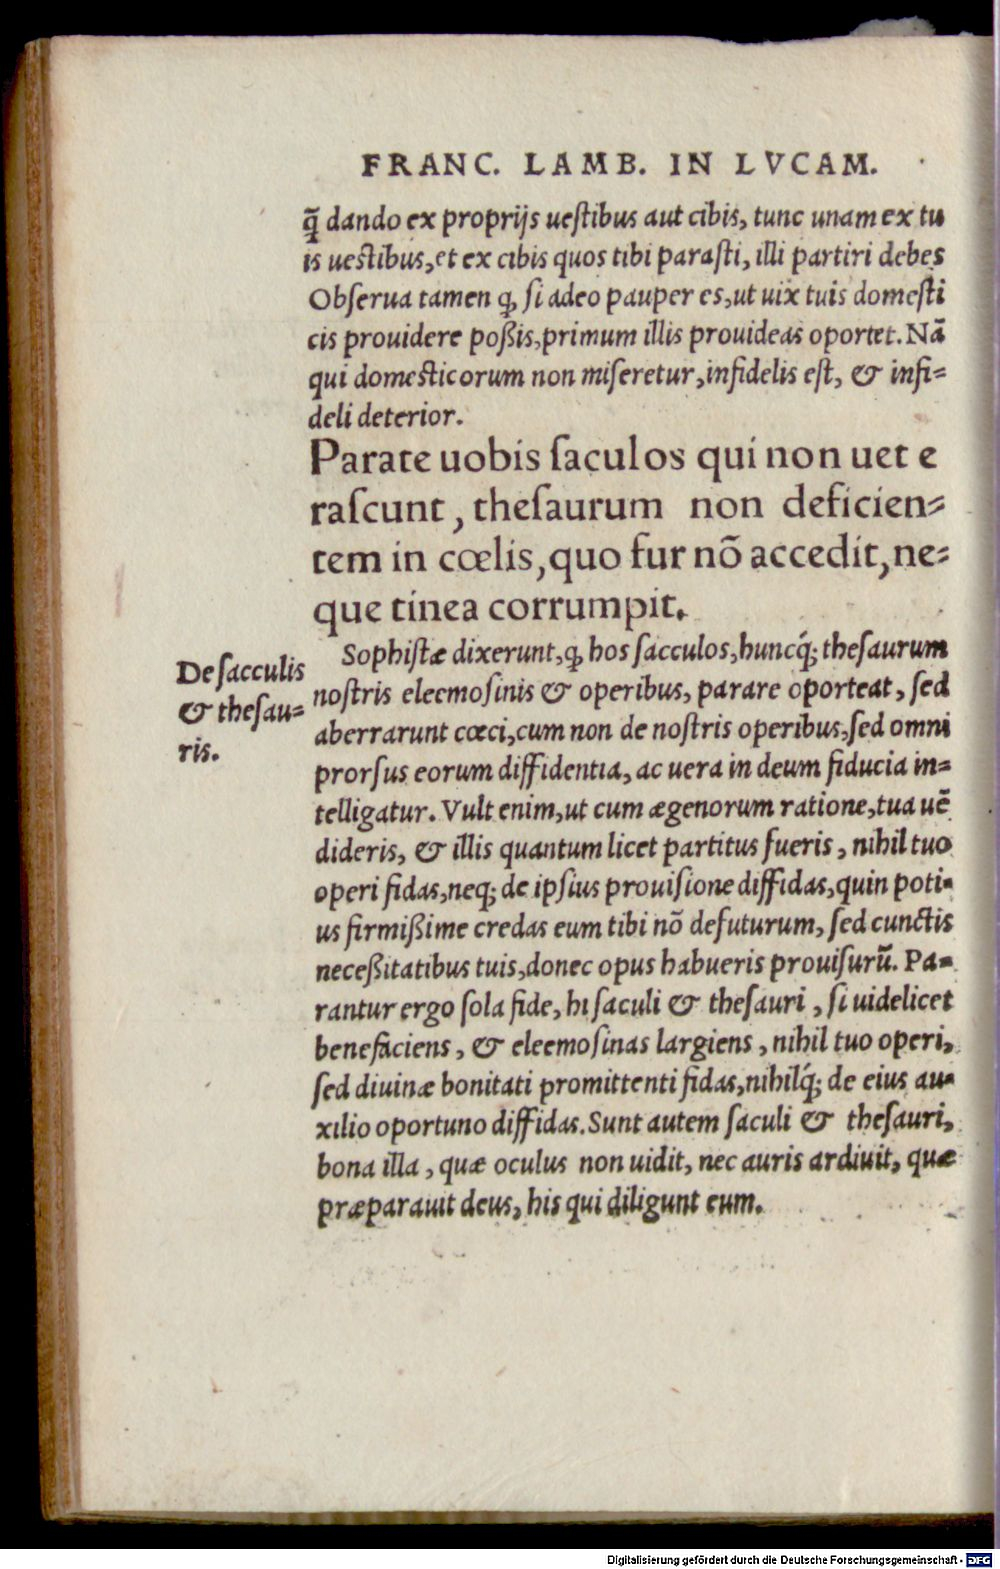 FRANC. LAMB. IN LVCAM.
q̃ dando ex proprijs ueſtibus aut cibis, tunc unam ex tu
is ueſtibus, et ex cibis quos tibi paraſti, illi partiri debes
Obſerua tamen ꝙ, ſi adeo pauper es, ut uix tuis domeſti
cis prouidere poßis, primum illis prouideas oportet. Nã
qui domeſticorum non miſeretur, infidelis eſt, & infi=
deli deterior.
Parate uobis ſaculos qui non uet e
raſcunt, theſaurum non deficien=
tem in cœlis, quo fur nõ accedit, ne=
que tinea corrumpit.
De ſacculis
& theſau=
ris.
Sophiſtæ dixerunt, ꝙ hos ſacculos, huncq́; theſaurum
noſtris eleemoſinis & operibus, parare oporteat, ſed
aberrarunt cœci, cum non de noſtris operibus, ſed omni
prorſus eorum diffidentia, ac uera in deum fiducia in=
telligatur. Vult enim, ut cum ægenorum ratione, tua uẽ
dideris, & illis quantum licet partitus fueris, nihil tuo
operi fidas, neq; de ipſius prouiſione diffidas, quin poti=
us firmißime credas eum tibi nõ defuturum, ſed cunctis
neceßitatibus tuis, donec opus habueris prouiſurũ. Pa=
rantur ergo ſola fide, hi ſaculi & theſauri, ſi uidelicet
benefaciens, & eleemoſinas largiens, nihil tuo operi,
ſed diuinæ bonitati promittenti fidas, nihilq́; de eius au=
xilio oportuno diffidas. Sunt autem ſaculi & theſauri,
bona illa, quæ oculus non uidit, nec auris ardiuit, quæ
præparauit deus, his qui diligunt eum.
Digitalisierung gefördert durch die Deutsche Forschungsgemeinschaft - DFG